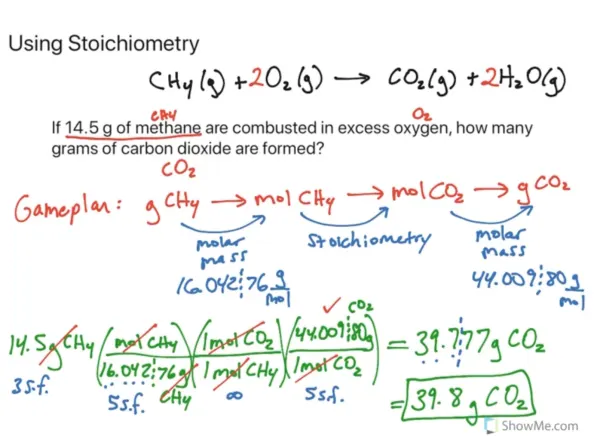 Using Stoichiometry
CH4(g) + 2O2(g) → CO2(g) + 2H2O(g)
CH4 O2
If 14.5 g of methane are combusted in excess oxygen, how many
grams of carbon dioxide are formed?
CO2
Gameplan: g CH4 → mol CH4 → mol CO2 → g CO2
molar mass stoichiometry molar mass
16.04276 g/mol 44.00980 g/mol
14.5g CH4 (mol CH4 / 16.04276g CH4) (1 mol CO2 / 1 mol CH4) (44.00980g CO2 / 1 mol CO2) = 39.777g CO2
3 s.f. 5 s.f. ∞ 5 s.f.
= 39.8 g CO2
ShowMe.com